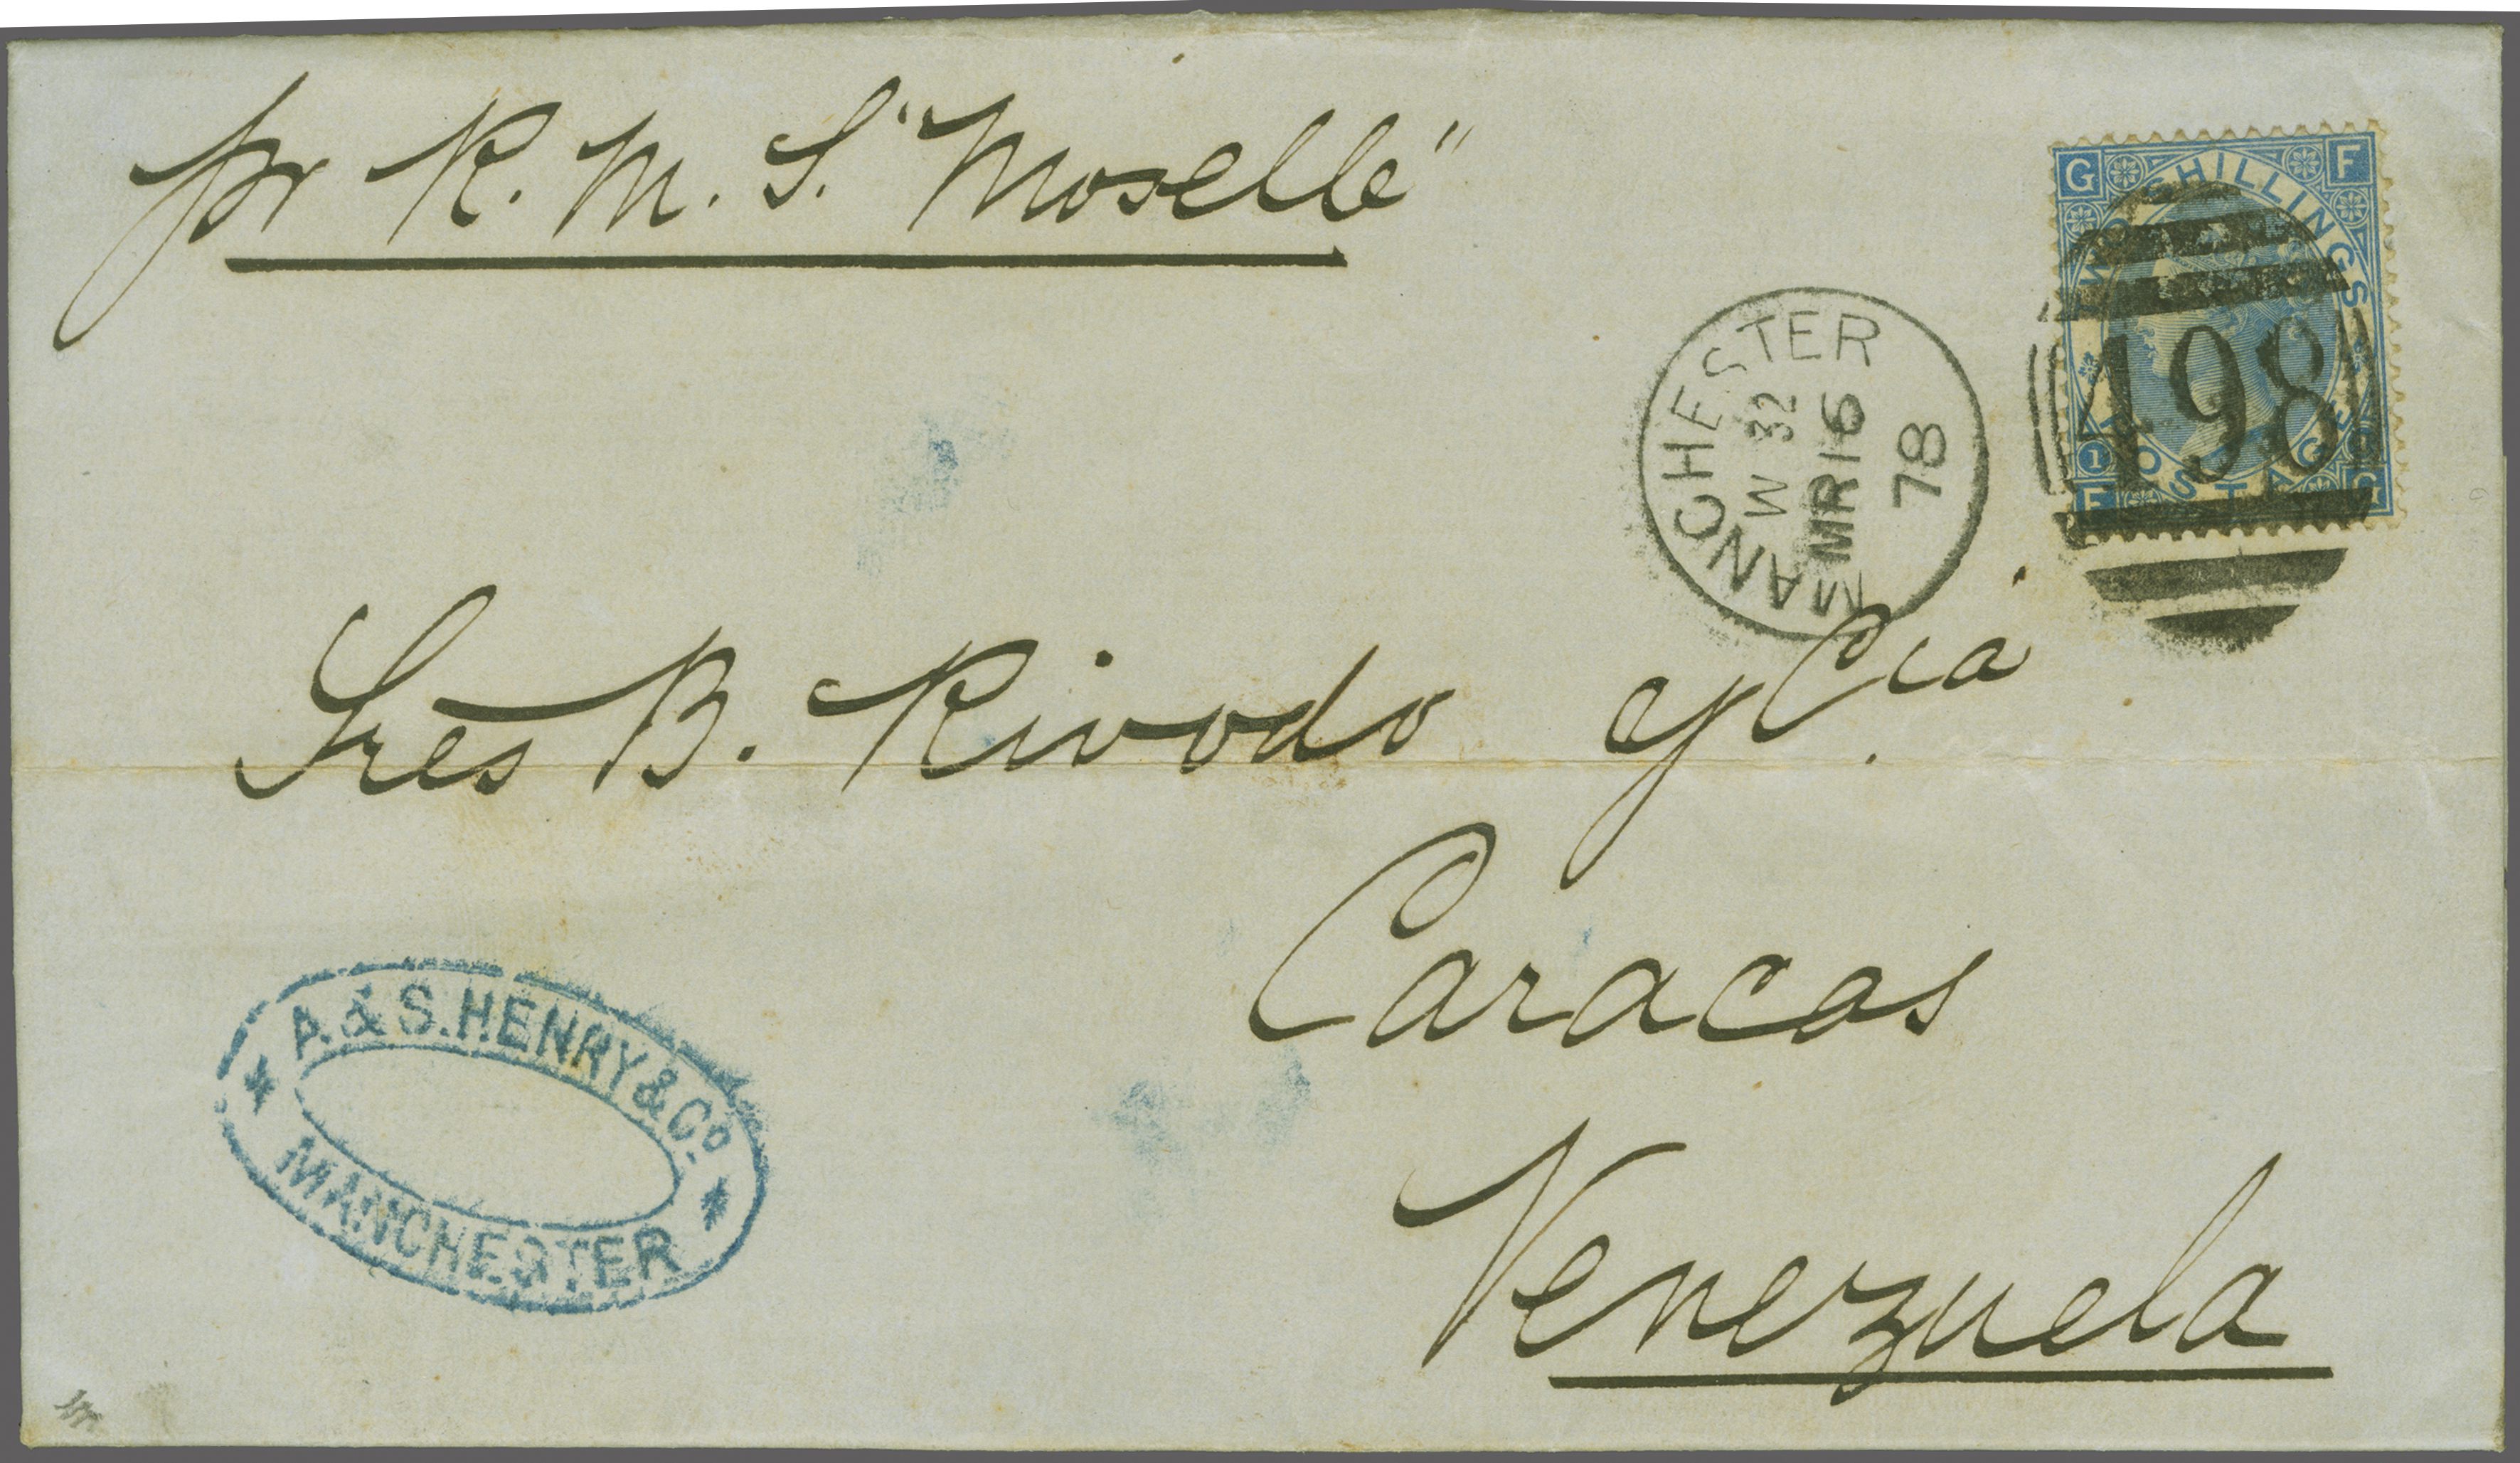 pr R. M. S. "Moselle"
G F
TWO SHILLINGS
498
1
POSTAGE
F G
MANCHESTER
W 32
MR 16
78
Sres B. Rivodo y Cia.
Caracas
Venezuela
A. & S. HENRY & Co.
* *
MANCHESTER